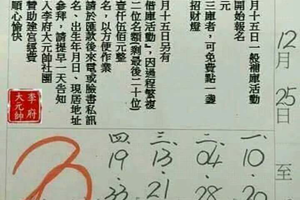 12月25日至
月十五日一般補庫活動
開始報名
元
三庫者，可免費點一盞
招財燈
月十五日另有
借庫活動』因過程繁複
二位名額(剩最後二十位)
元整
名，以方便作業
請於匯款後來電或臉書私訊
名、出生年月日、現居地址
參拜，請提早一天告知
入李府大元帥社團
贊助建宮經費
順心愉快
李府
大元帥
一.10-20
二.04-28
三.13-21
四.19-33